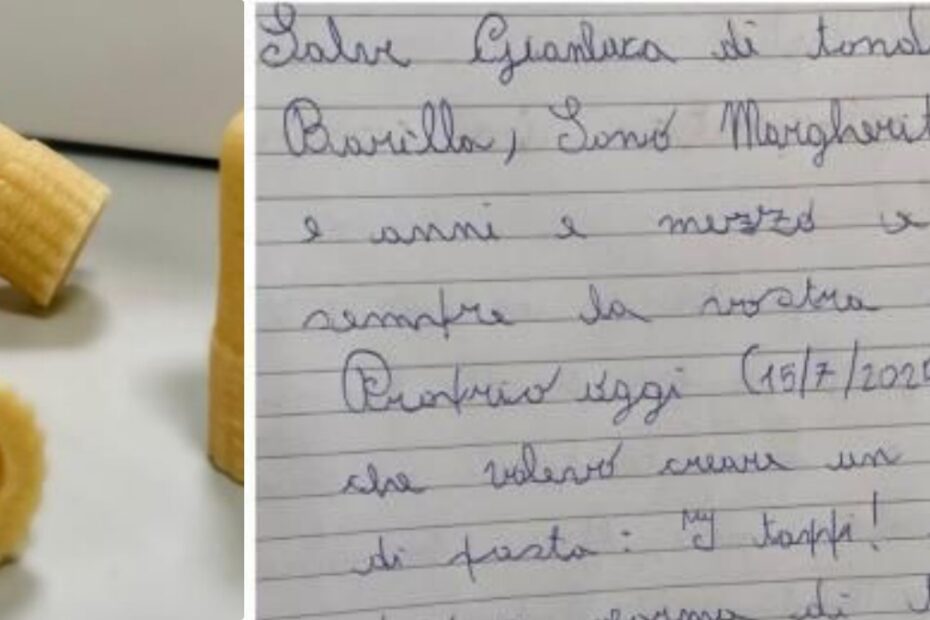 Salve Gianluca di tond
Barilla, Sono Margherit
e anni e mezzo e
sempre la vostra
Proprio oggi (15/7/2020
che volevo creare un
di pasta: "I tappi!
forma di